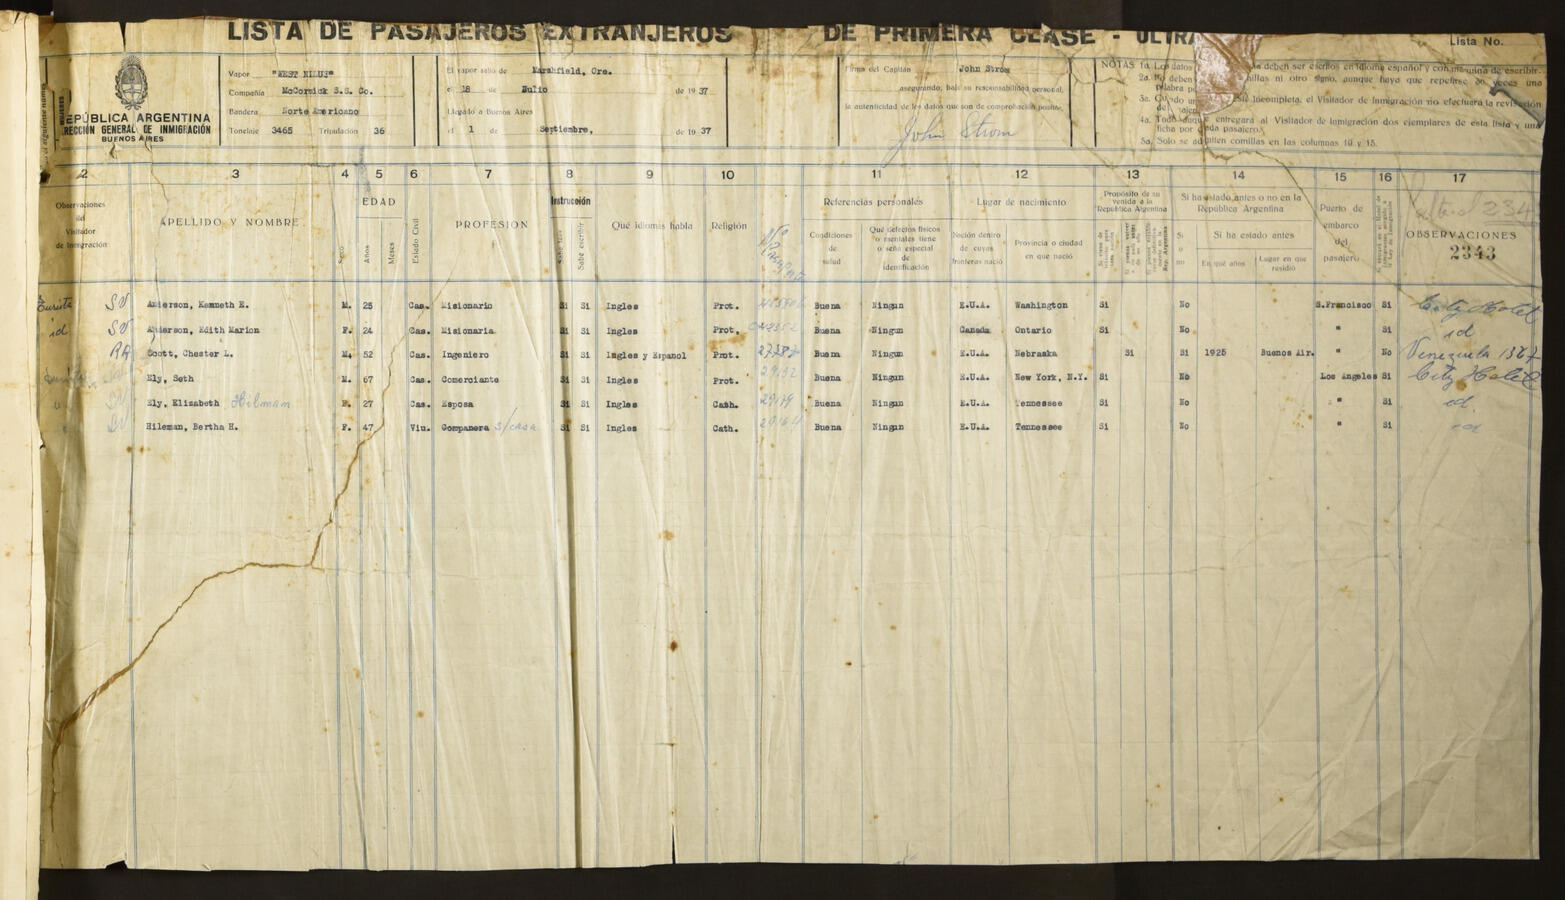 LISTA DE PASAJEROS EXTRANJEROS DE PRIMERA CLASE - ULTRA
Lista No.
REPÚBLICA ARGENTINA
DIRECCIÓN GENERAL DE INMIGRACIÓN
BUENOS AIRES
Vapor "WEST NILUS"
Compañía McCormick S.S. Co.
Bandera Norte Americano
Tonelaje 3465 Tripulación 36
El vapor salió de Marshfield, Ore.
el 18 de Julio de 1937
Llegado a Buenos Aires
el 1 de Septiembre, de 1937
Firma del Capitán John Strom
asegurando, bajo su responsabilidad personal,
la autenticidad de los datos que son de comprobación positiva.
John Strom
NOTAS 1a Los datos deben ser escritos en idioma español y con máquina de escribir.
2a. No deben comillas ni otro signo, aunque haya que repetirse veces una
palabra
3a. incompleta, el Visitador de Inmigración no efectuará la revisión
4a. entregará al Visitador de Inmigración dos ejemplares de esta lista y una
ficha por cada pasajero.
5a. Solo se admiten comillas en las columnas 10 y 15.
2 3 4 5 6 7 8 9 10 11 12 13 14 15 16 17
Observaciones del Visitador de Inmigración
APELLIDO Y NOMBRE
Sexo
EDAD
Años
Meses
Estado Civil
PROFESION
Instrucción
Sabe leer
Sabe escribir
Qué idiomas habla
Religión
Referencias personales
Condiciones de salud
Qué defectos físicos o mentales tiene o seña especial de identificación
Lugar de nacimiento
Nación dentro de cuyas fronteras nació
Provincia o ciudad en que nació
Propósito de su venida a la República Argentina
Si ha estado antes o no en la República Argentina
Si o no
Si ha estado antes
En qué años
Lugar en que residió
Puerto de embarco del pasajero
OBSERVACIONES
2343
Turista SV Anderson, Kenneth E. M. 25 Cas. Misionario Si Si Ingles Prot. Buena Ningun E.U.A. Washington Si No S.Francisco Si City Hotel
id SV Anderson, Edith Marion F. 24 Cas. Misionaria Si Si Ingles Prot. Buena Ningun Canada Ontario Si No " Si id
RA Scott, Chester L. M. 52 Cas. Ingeniero Si Si Ingles y Espanol Prot. Buena Ningun E.U.A. Nebraska Si Si 1925 Buenos Air. " No Venezuela 1367
Ely, Seth M. 67 Cas. Comerciante Si Si Ingles Prot. 29132 Buena Ningun E.U.A. New York, N.Y. Si No Los Angeles Si City Hotel
Ely, Elizabeth Hilemam F. 27 Cas. Esposa Si Si Ingles Cath. Buena Ningun E.U.A. Tennessee Si No " Si id.
Hileman, Bertha H. F. 47 Viu. Companera s/casa Si Si Ingles Cath. Buena Ningun E.U.A. Tennessee Si No " Si id